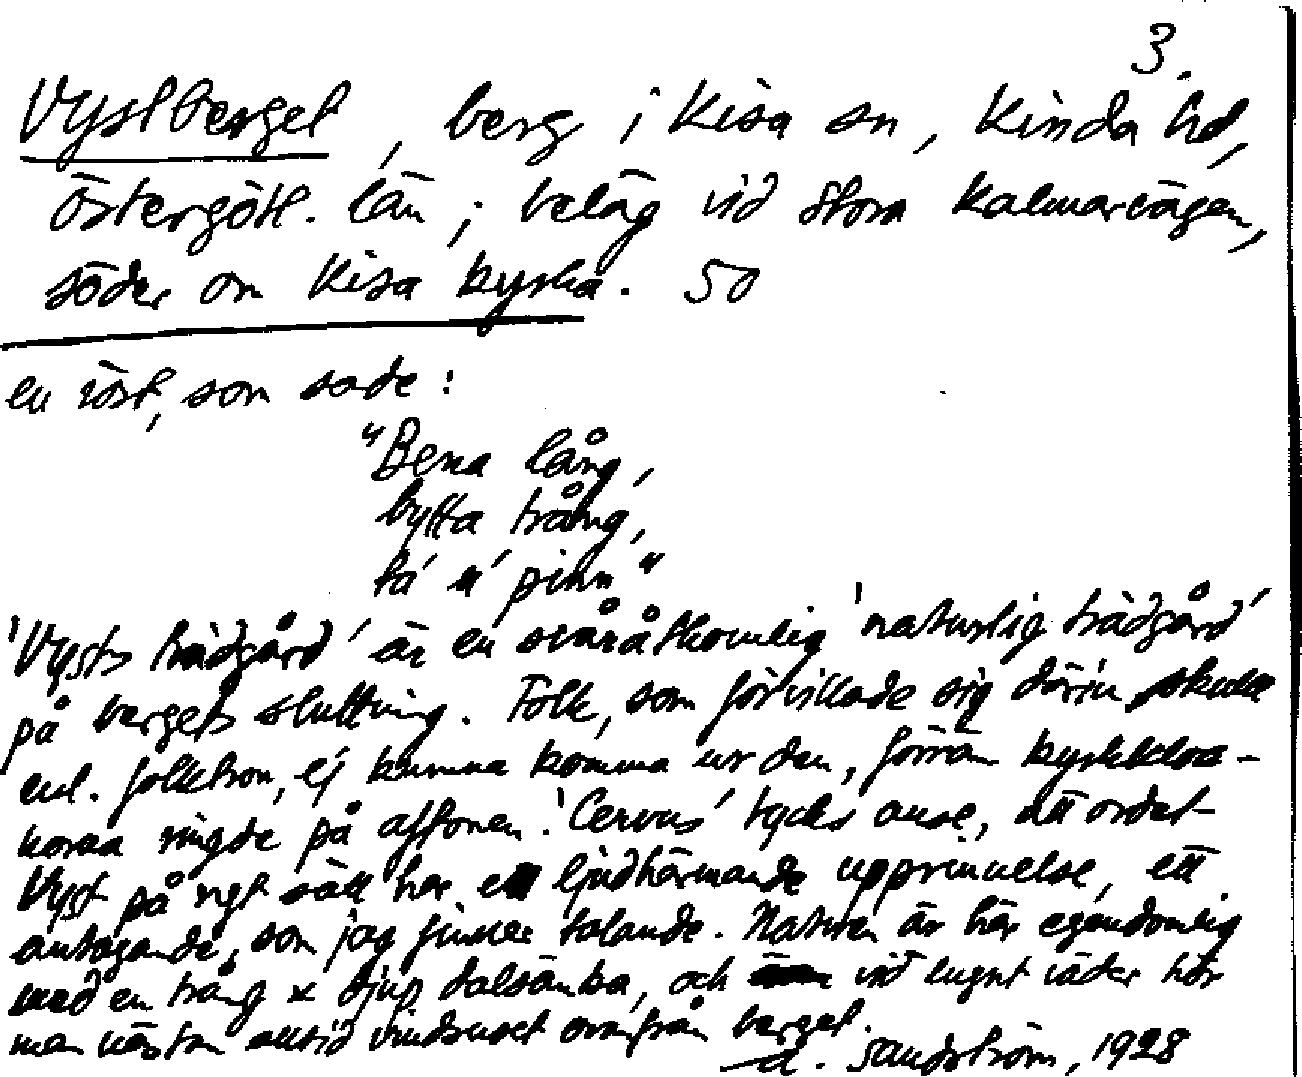 3.
Vystberget, berg i Kisa sn, Kinda hd,
Östergötl. län; beläg vid stora Kalmarvägen,
söder om Kisa kyrka. 50
en röst, som sade:
"Bena lång,
bytta trång,
ta' n' pinn"
'Vysts trädgård' är en svåråtkomlig 'naturlig trädgård'
på bergets sluttning. Folk, som förvillade sig därin, skulle
enl. folktron, ej kunna komma ur den, förrän kyrkkloc-
korna ringde på aftonen. 'Cervus' tycks anse, att ordet
Vyst på ngt sätt har ljudhärmande upprinnelse, ett
antagande, som jag finner talande. Naturen är här egendomlig
med en trång x djup dalsänka, och vid lugnt väder hör
man nästan alltid vindsuset ovanfrån berget.
A. Sandström, 1928